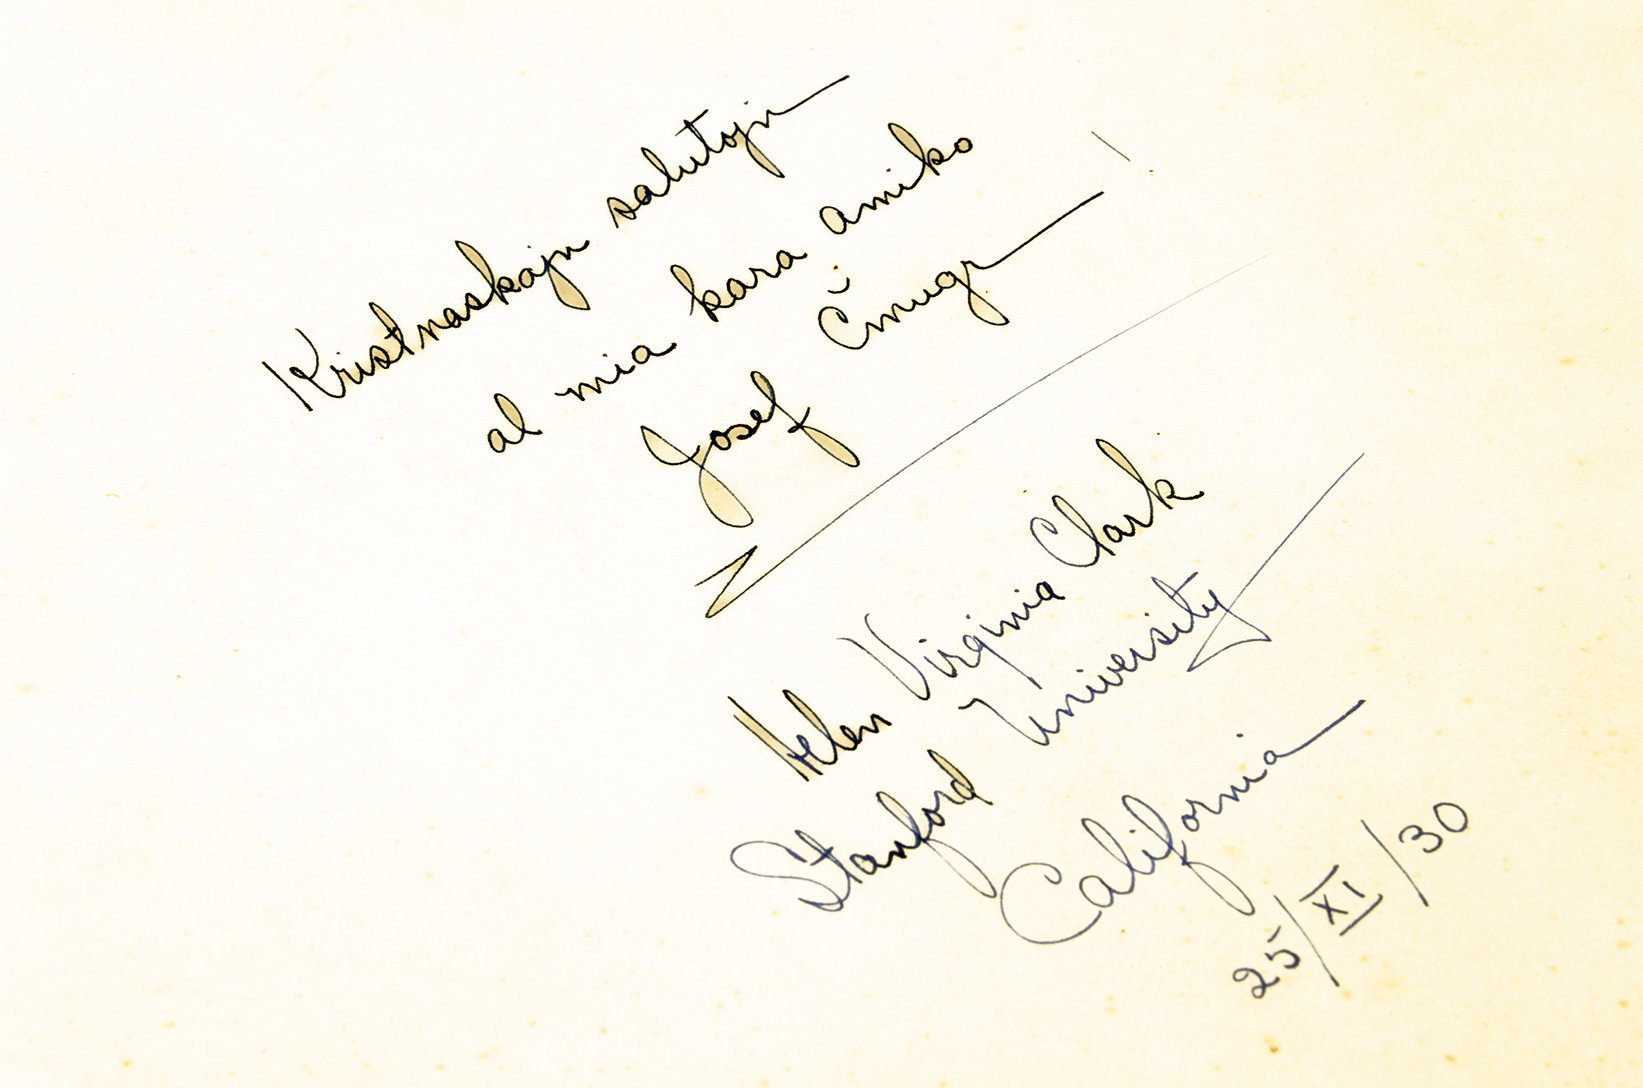 Kristnaskajn salutojn
al mia kara amiko
Josef Čmugr!
Helen Virginia Clark
Stanford University
California
25/XI/30